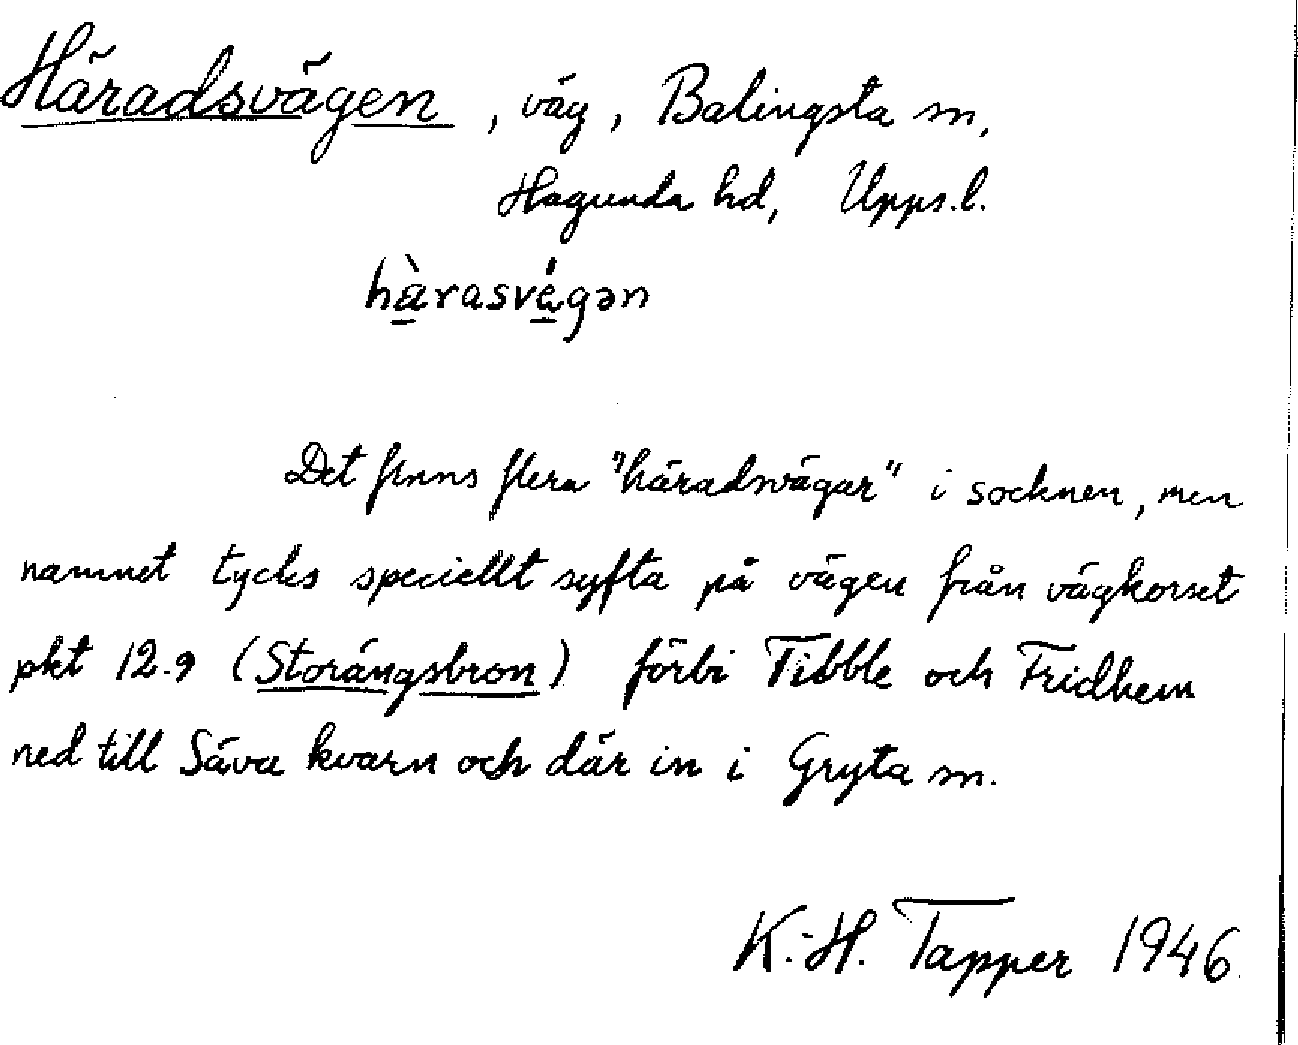 Häradsvägen, väg, Balingsta sn,
Hagunda hd, Upps.l.
hä̀rasvä́gən
Det finns flera "häradsvägar" i socknen, men
namnet tycks speciellt syfta på vägen från vägkorset
pkt 12.9 (Storängsbron) förbi Tibble och Fridhem
ned till Säva kvarn och där in i Gryta sn.
K.-H. Tapper 1946.